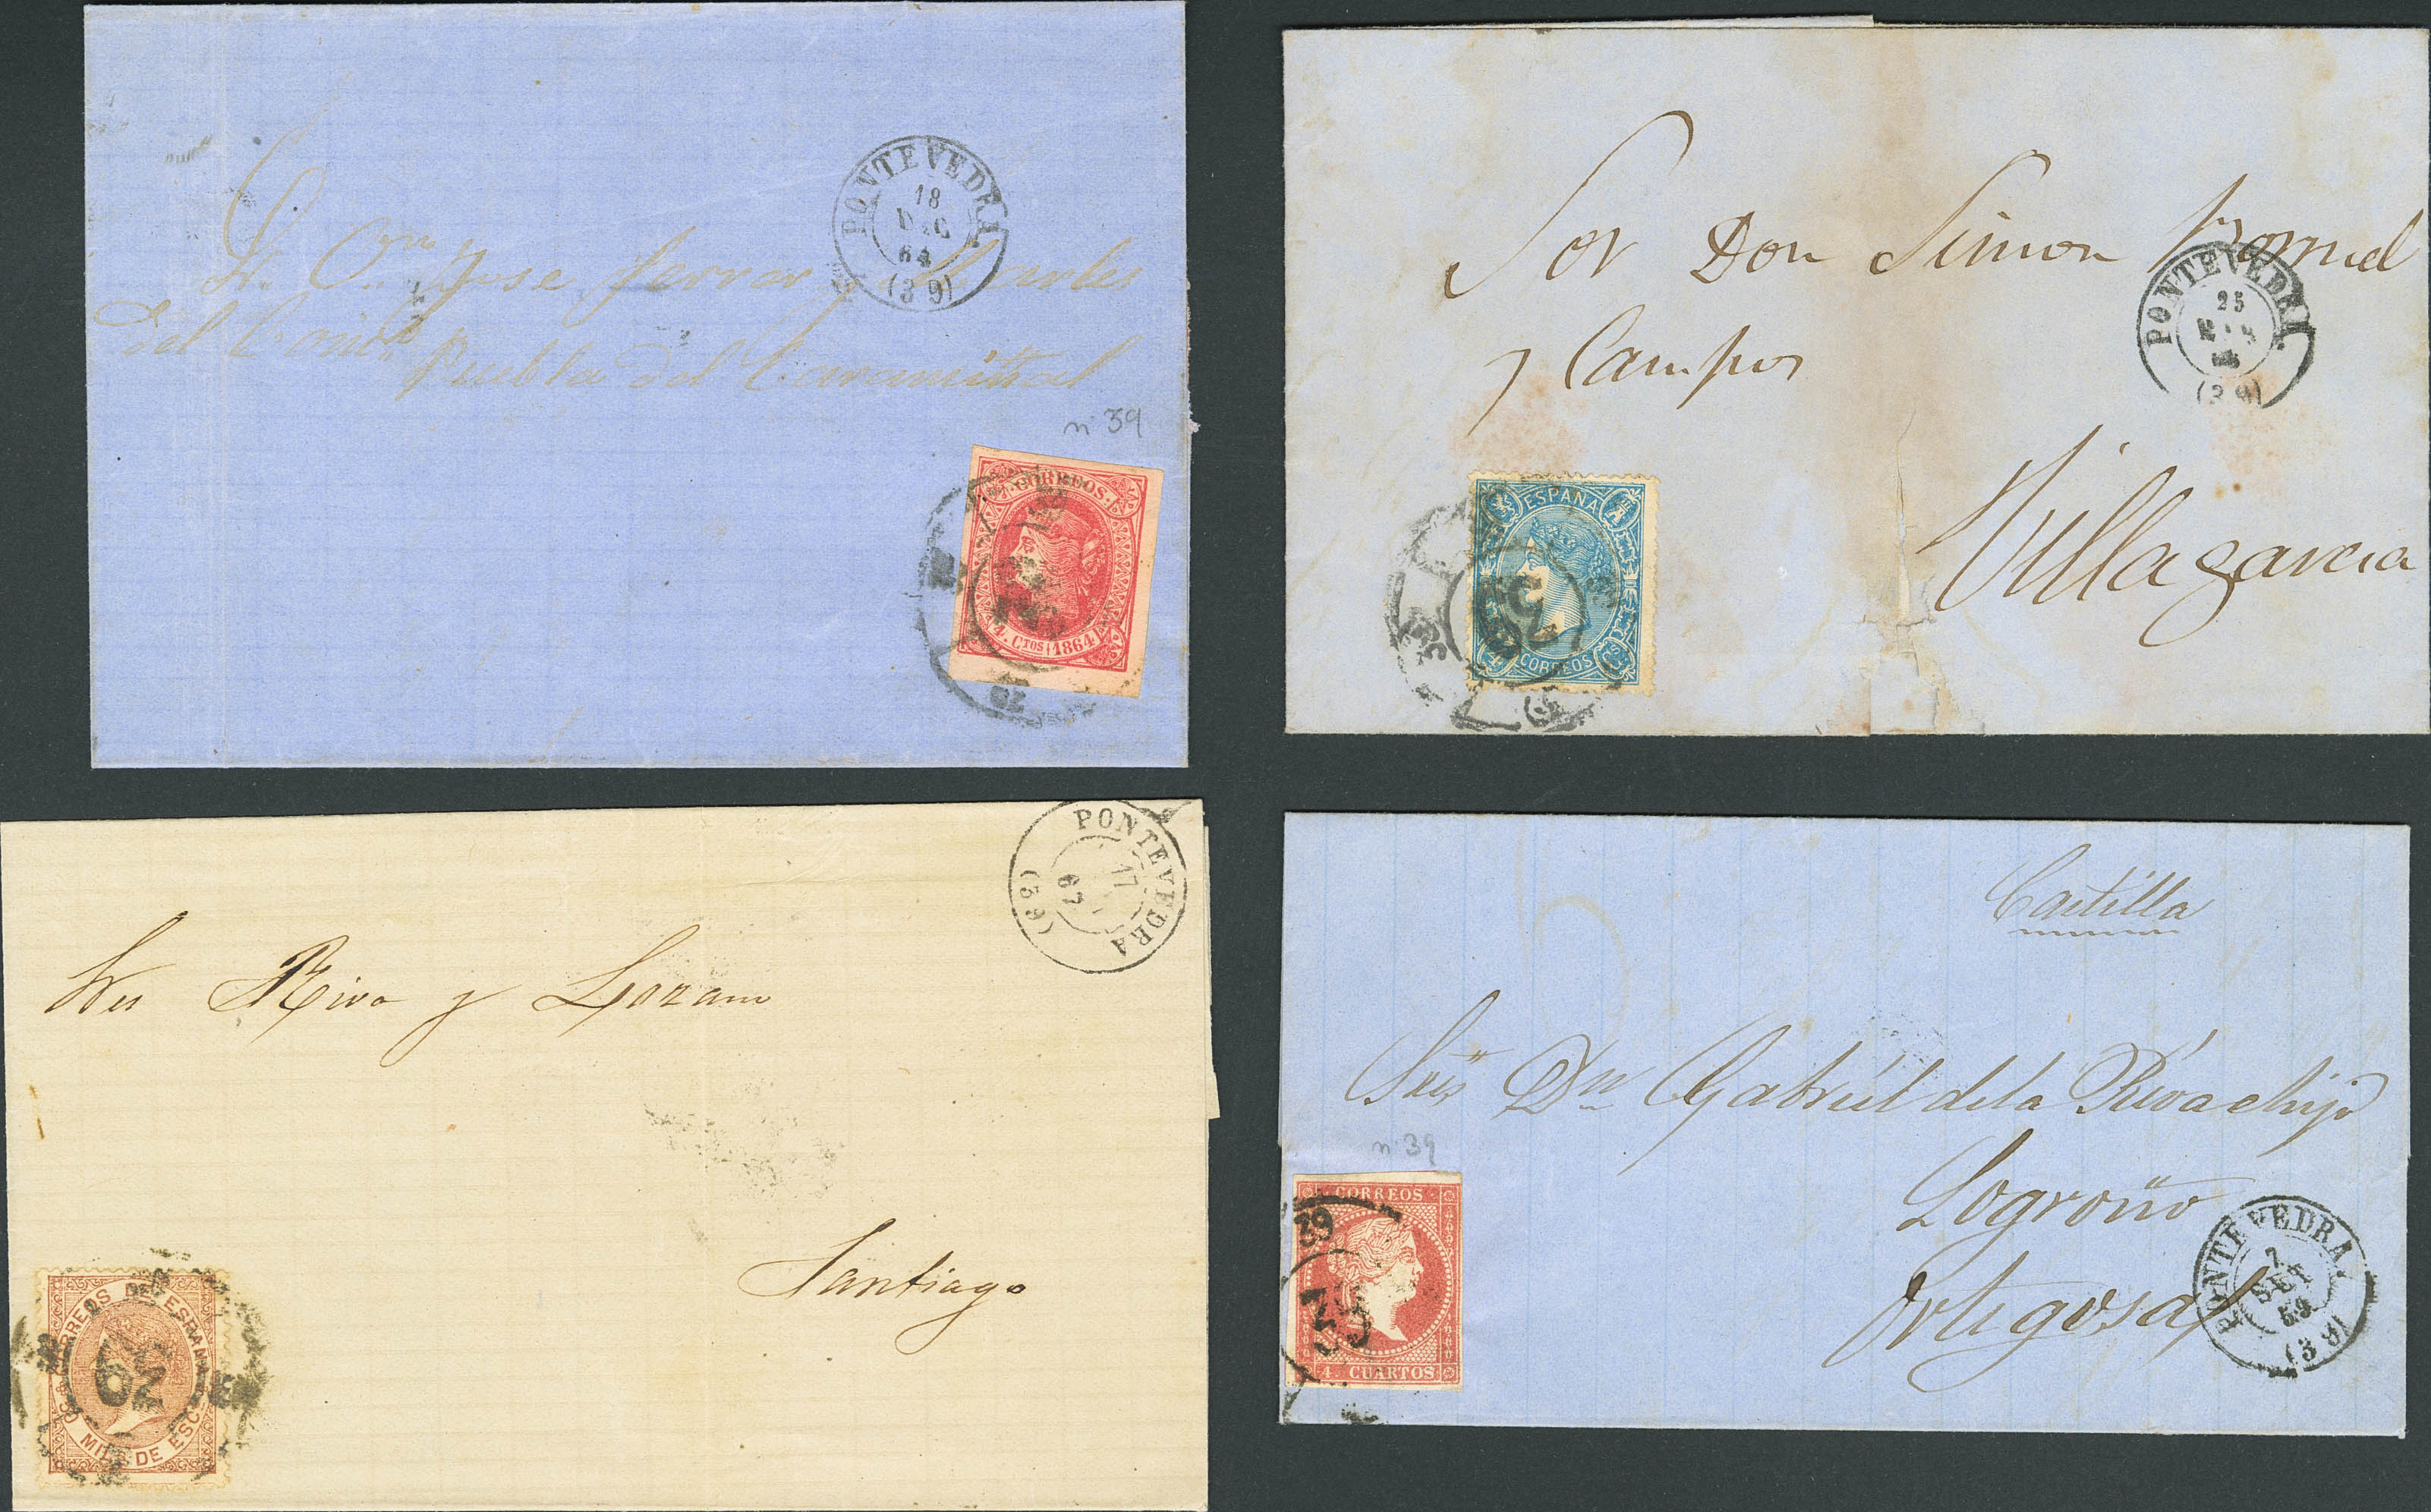 PONTEVEDRA.
18
DIC
64
(39)
Jose Ferrer y
del
Puebla del Caramiñal
n 39
CORREOS.
4. CTOS 1864
Sor Don Simon
y Campos
Villagarcia
PONTEVEDRA.
25
(39)
ESPAÑA
39
CORREOS
PONTEVEDRA
17
67
(39)
Riva y Lozano
Santiago
CORREOS DE ESPAÑA
39
MILS DE ESCO
Castilla
Dn Gabriel de la Riva e hijo
n 39
Logroño
Ortigosa
PONTEVEDRA.
7
SET
59
(39)
CORREOS
39
39
4 CUARTOS